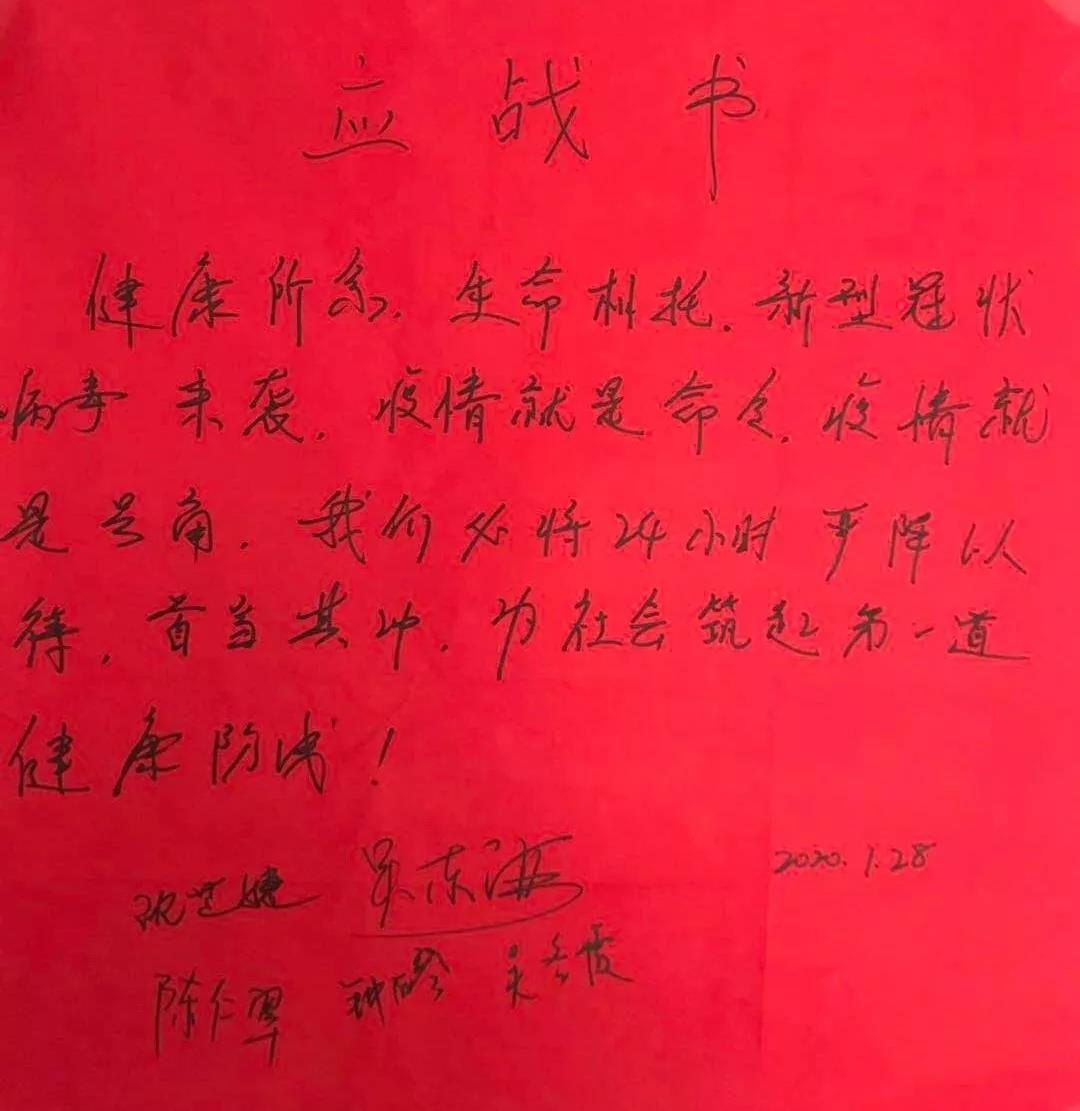 应战书
健康所系，生命相托。新型冠状
病毒来袭，疫情就是命令，疫情就
是号角。我们必将24小时严阵以
待，首当其冲，为社会筑起第一道
健康防线！
吴东海 2020.1.28
陈仁翠